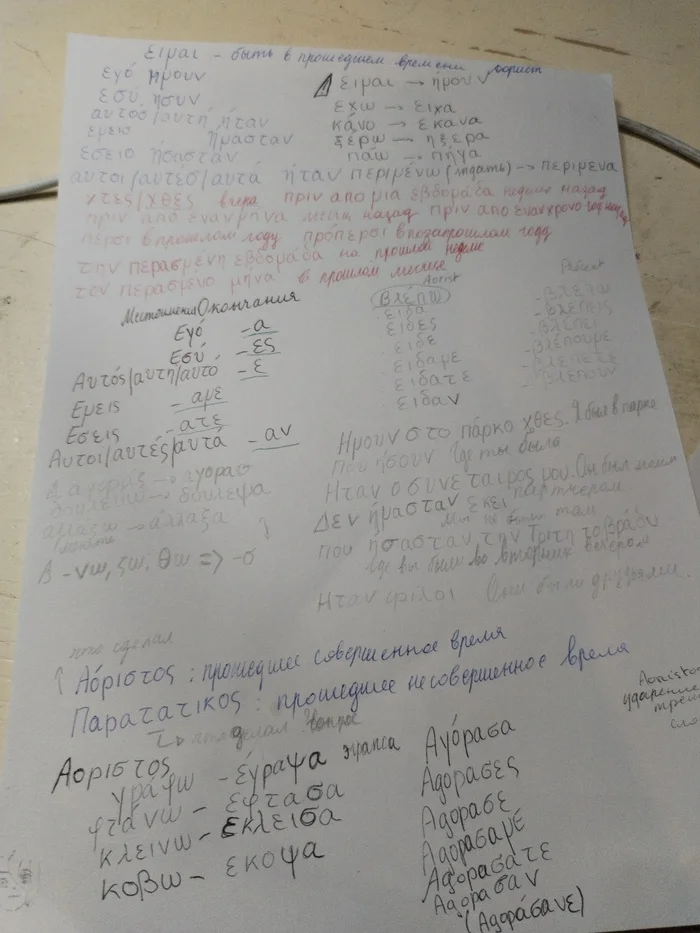 ειμαι – быть в прошедшем времени аорист
εγό ήμουν
εσύ ήσυν
αυτός/αυτή ήταν
εμεισ ήμασταν
εσεισ ήσασταν
αυτοι/αυτεσ/αυτά ήταν
ειμαι → ήμουν
εχω → ειχα
κάνο → εκανα
ξέρω → ηξερα
πάω → πήγα
περιμένω (ждать) → περιμενα
χτες/χθες вчера πριν απο μια εβδομάδα неделю назад
πριν απο εναν μήνα месяц назад πριν απο εναν χρονο год назад
πέρσι в прошлом году πρόπερσι в позапрошлом году
την περασμένη εβδομάδα на прошлой неделе
τον περασμενο μήνα в прошлом месяце
Местоимения Окончания
Εγό -α
Εσύ -ες
Αυτός/αυτη/αυτο -ε
Εμεις -αμε
Εσεις -ατε
Αυτοι/αυτές/αυτά -αν
Aorist
βλέπω
ειδα
ειδες
ειδε
ειδαμε
ειδατε
ειδαν
Present
-βλέπω
-βλεπεις
-βλεπει
-βλέπουμε
-βλεπετε
-βλεπουν
δουλευω → δουλεψα
αλλαζω → άλλαξα
-νω, ζω, θω => -σ
Ημουν στο πάρκο χθες. Я был в парке
Που ήσουν Где ты была
Ηταν ο συνεταιρος μου. Он был моим партнером
Δεν ήμασταν εκει Мы не были там
που ήσασταν την Τριτη το βράδυ
где вы были во вторник вечером
Ηταν φιλοι Они были друзьями.
что сделал
Αόριστος: прошедшее совершенное время
Παρατατικος: прошедшее несовершенное время
что делал вопрос
Αοριστος
γράφω – έγραψα
φτάνω – εφτασα
κλεινω – εκλεισα
κοβω – εκοψα
Αγόρασα
Αgορασες
Αgορασε
Αgορασαμε
Αgορασατε
Αgορασαν
(Αgοράσανε)
Aoristos
ударение